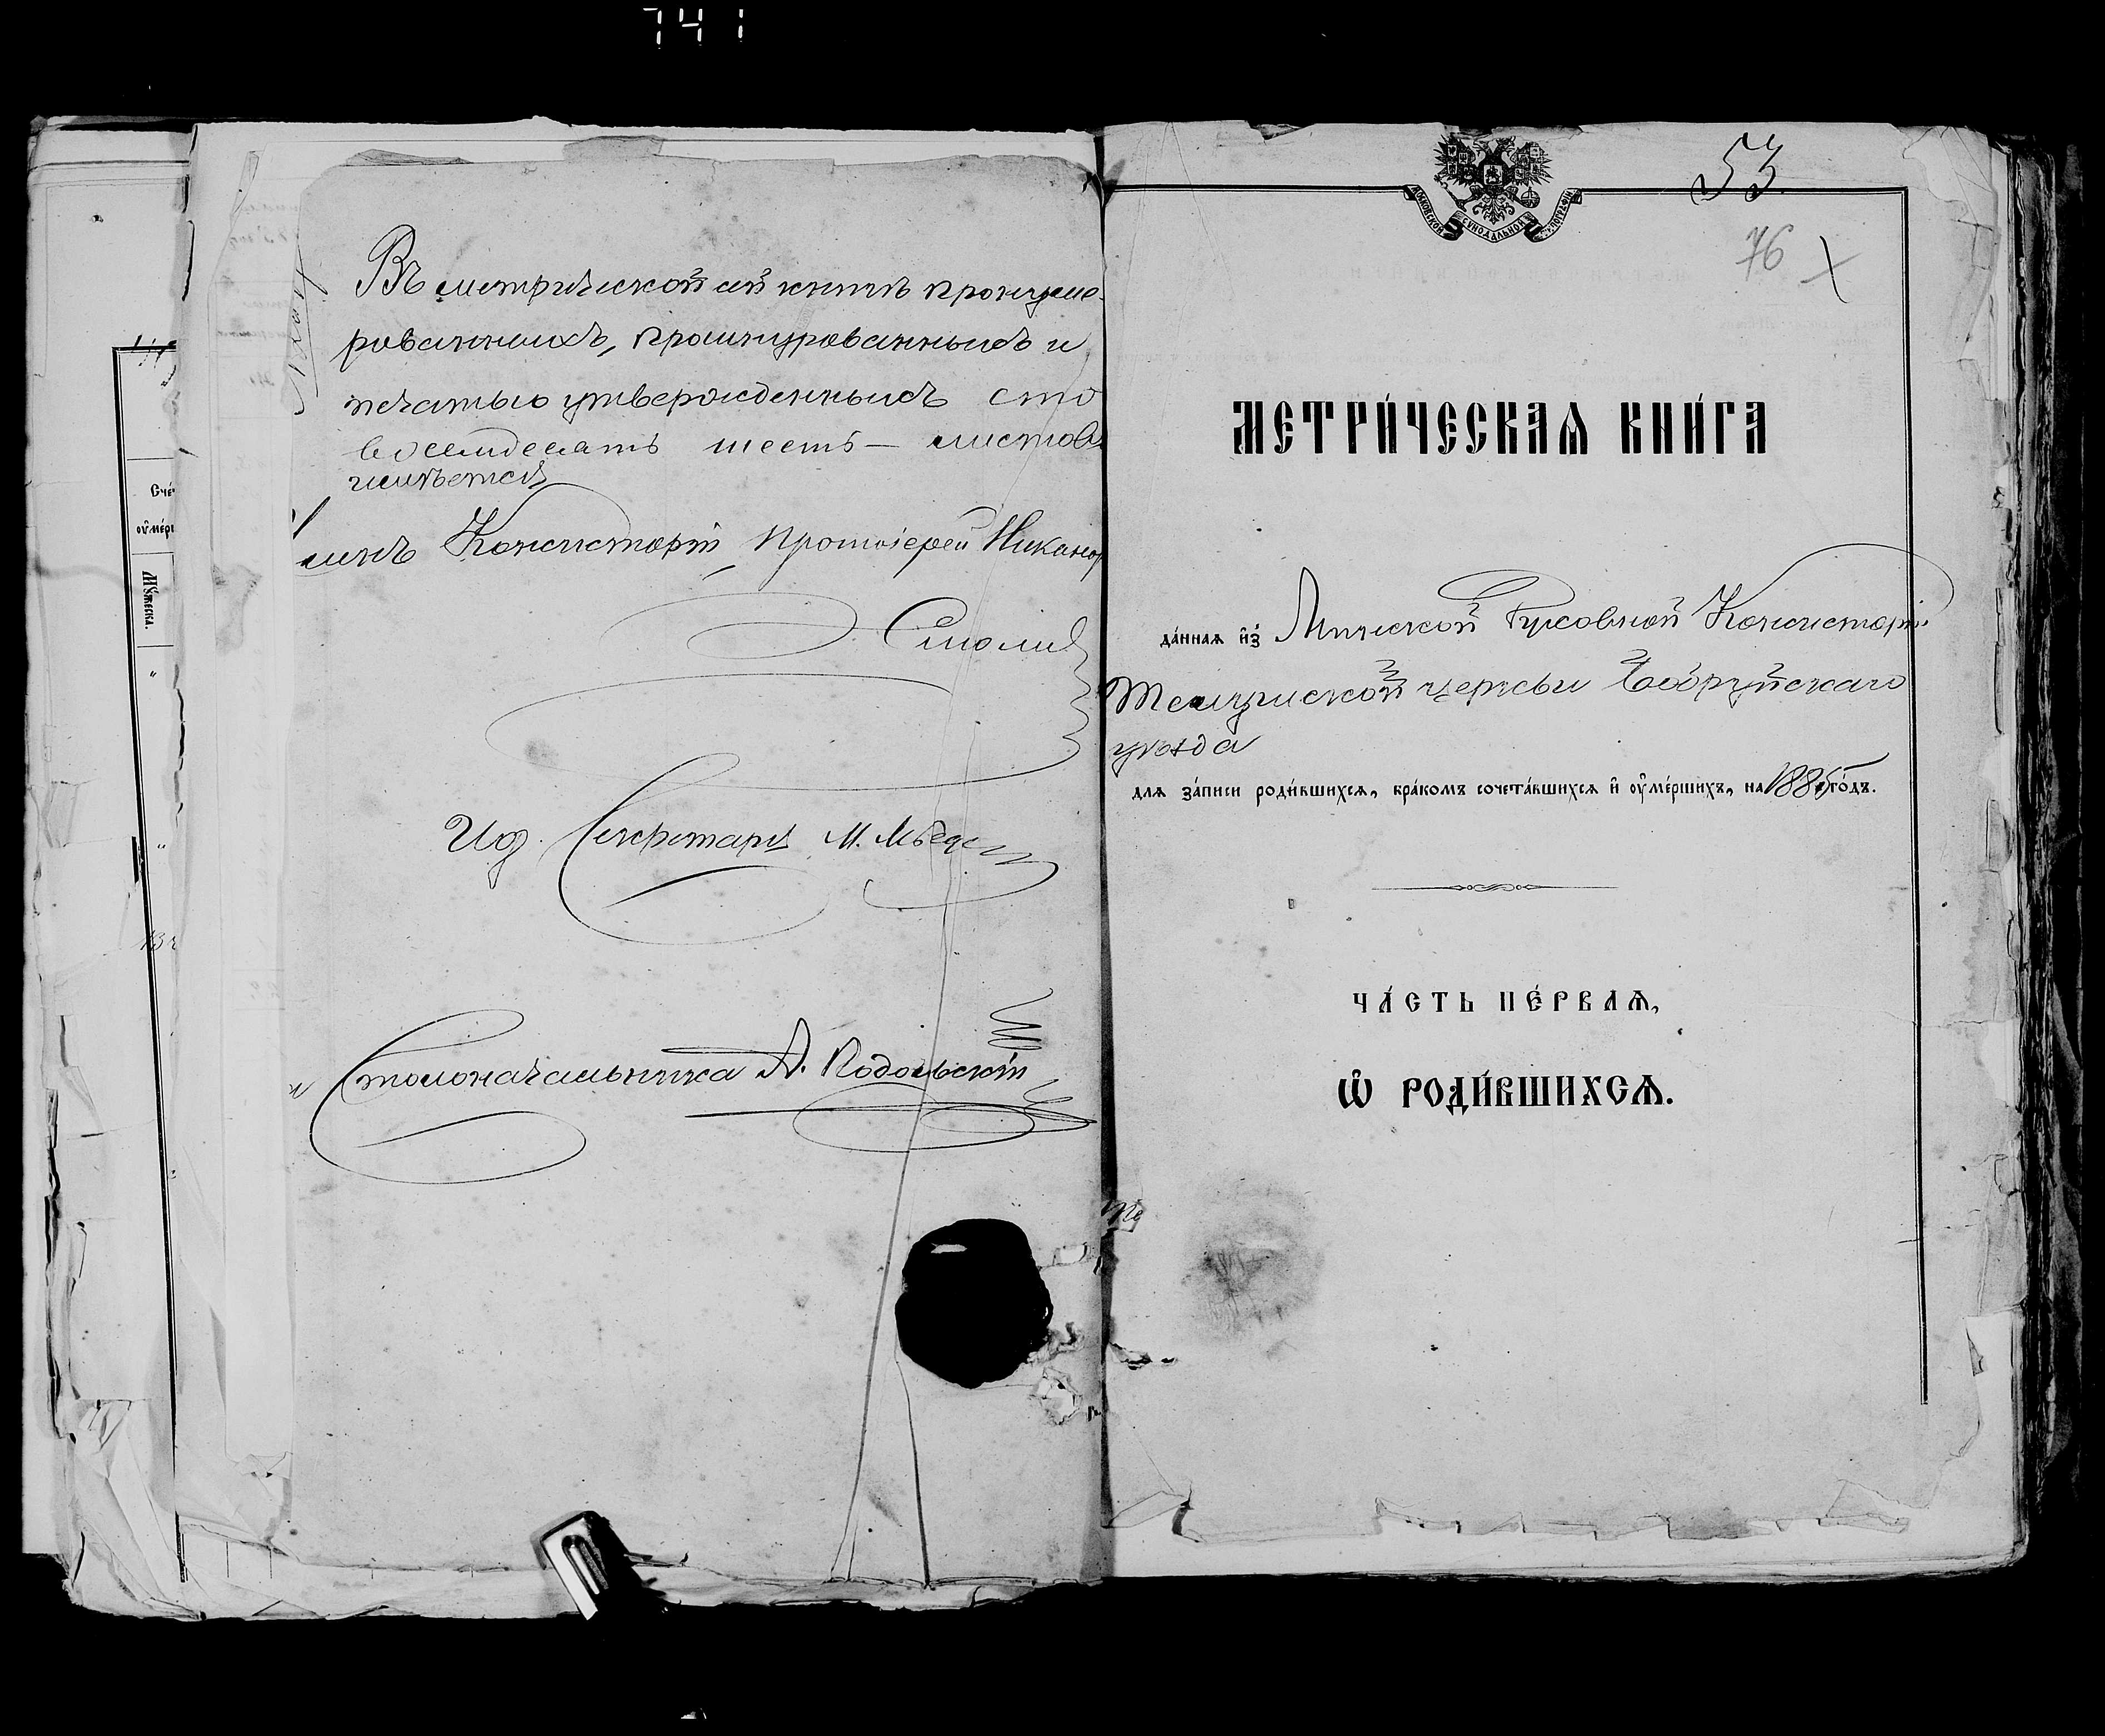 741
Въ метрической сей книгѣ пронуме-
рованныхъ, прошнурованныхъ и
печатью утвержденныхъ сто
восемдесятъ шесть — листовъ
имѣется
Членъ Консисторіи, Протоіерей Никанор
Смолич
Ид. Секретаря М.
Столоначальника А. Подольскій
Сче́
оу҆ме́р
Мꙋ́жеска.
53.
76
МОСКОВСКОЙ СѴНОДАЛЬНОЙ ТИПОГРАФІИ
МЕТРИ́ЧЕСКАѦ КНИ́ГА
да́ннаѧ и҆з̾ Минской Духовной Консисторіи
церкви Бобруйскаго
уѣзда
длѧ за́писи роди́вшихсѧ, бра́комъ сочета́вшихсѧ и҆ оу҆ме́ршихъ, на 1885 го́дъ.
ЧА́СТЬ ПЕ́РВАѦ,
Ѡ҆ РОДИ́ВШИХСѦ.